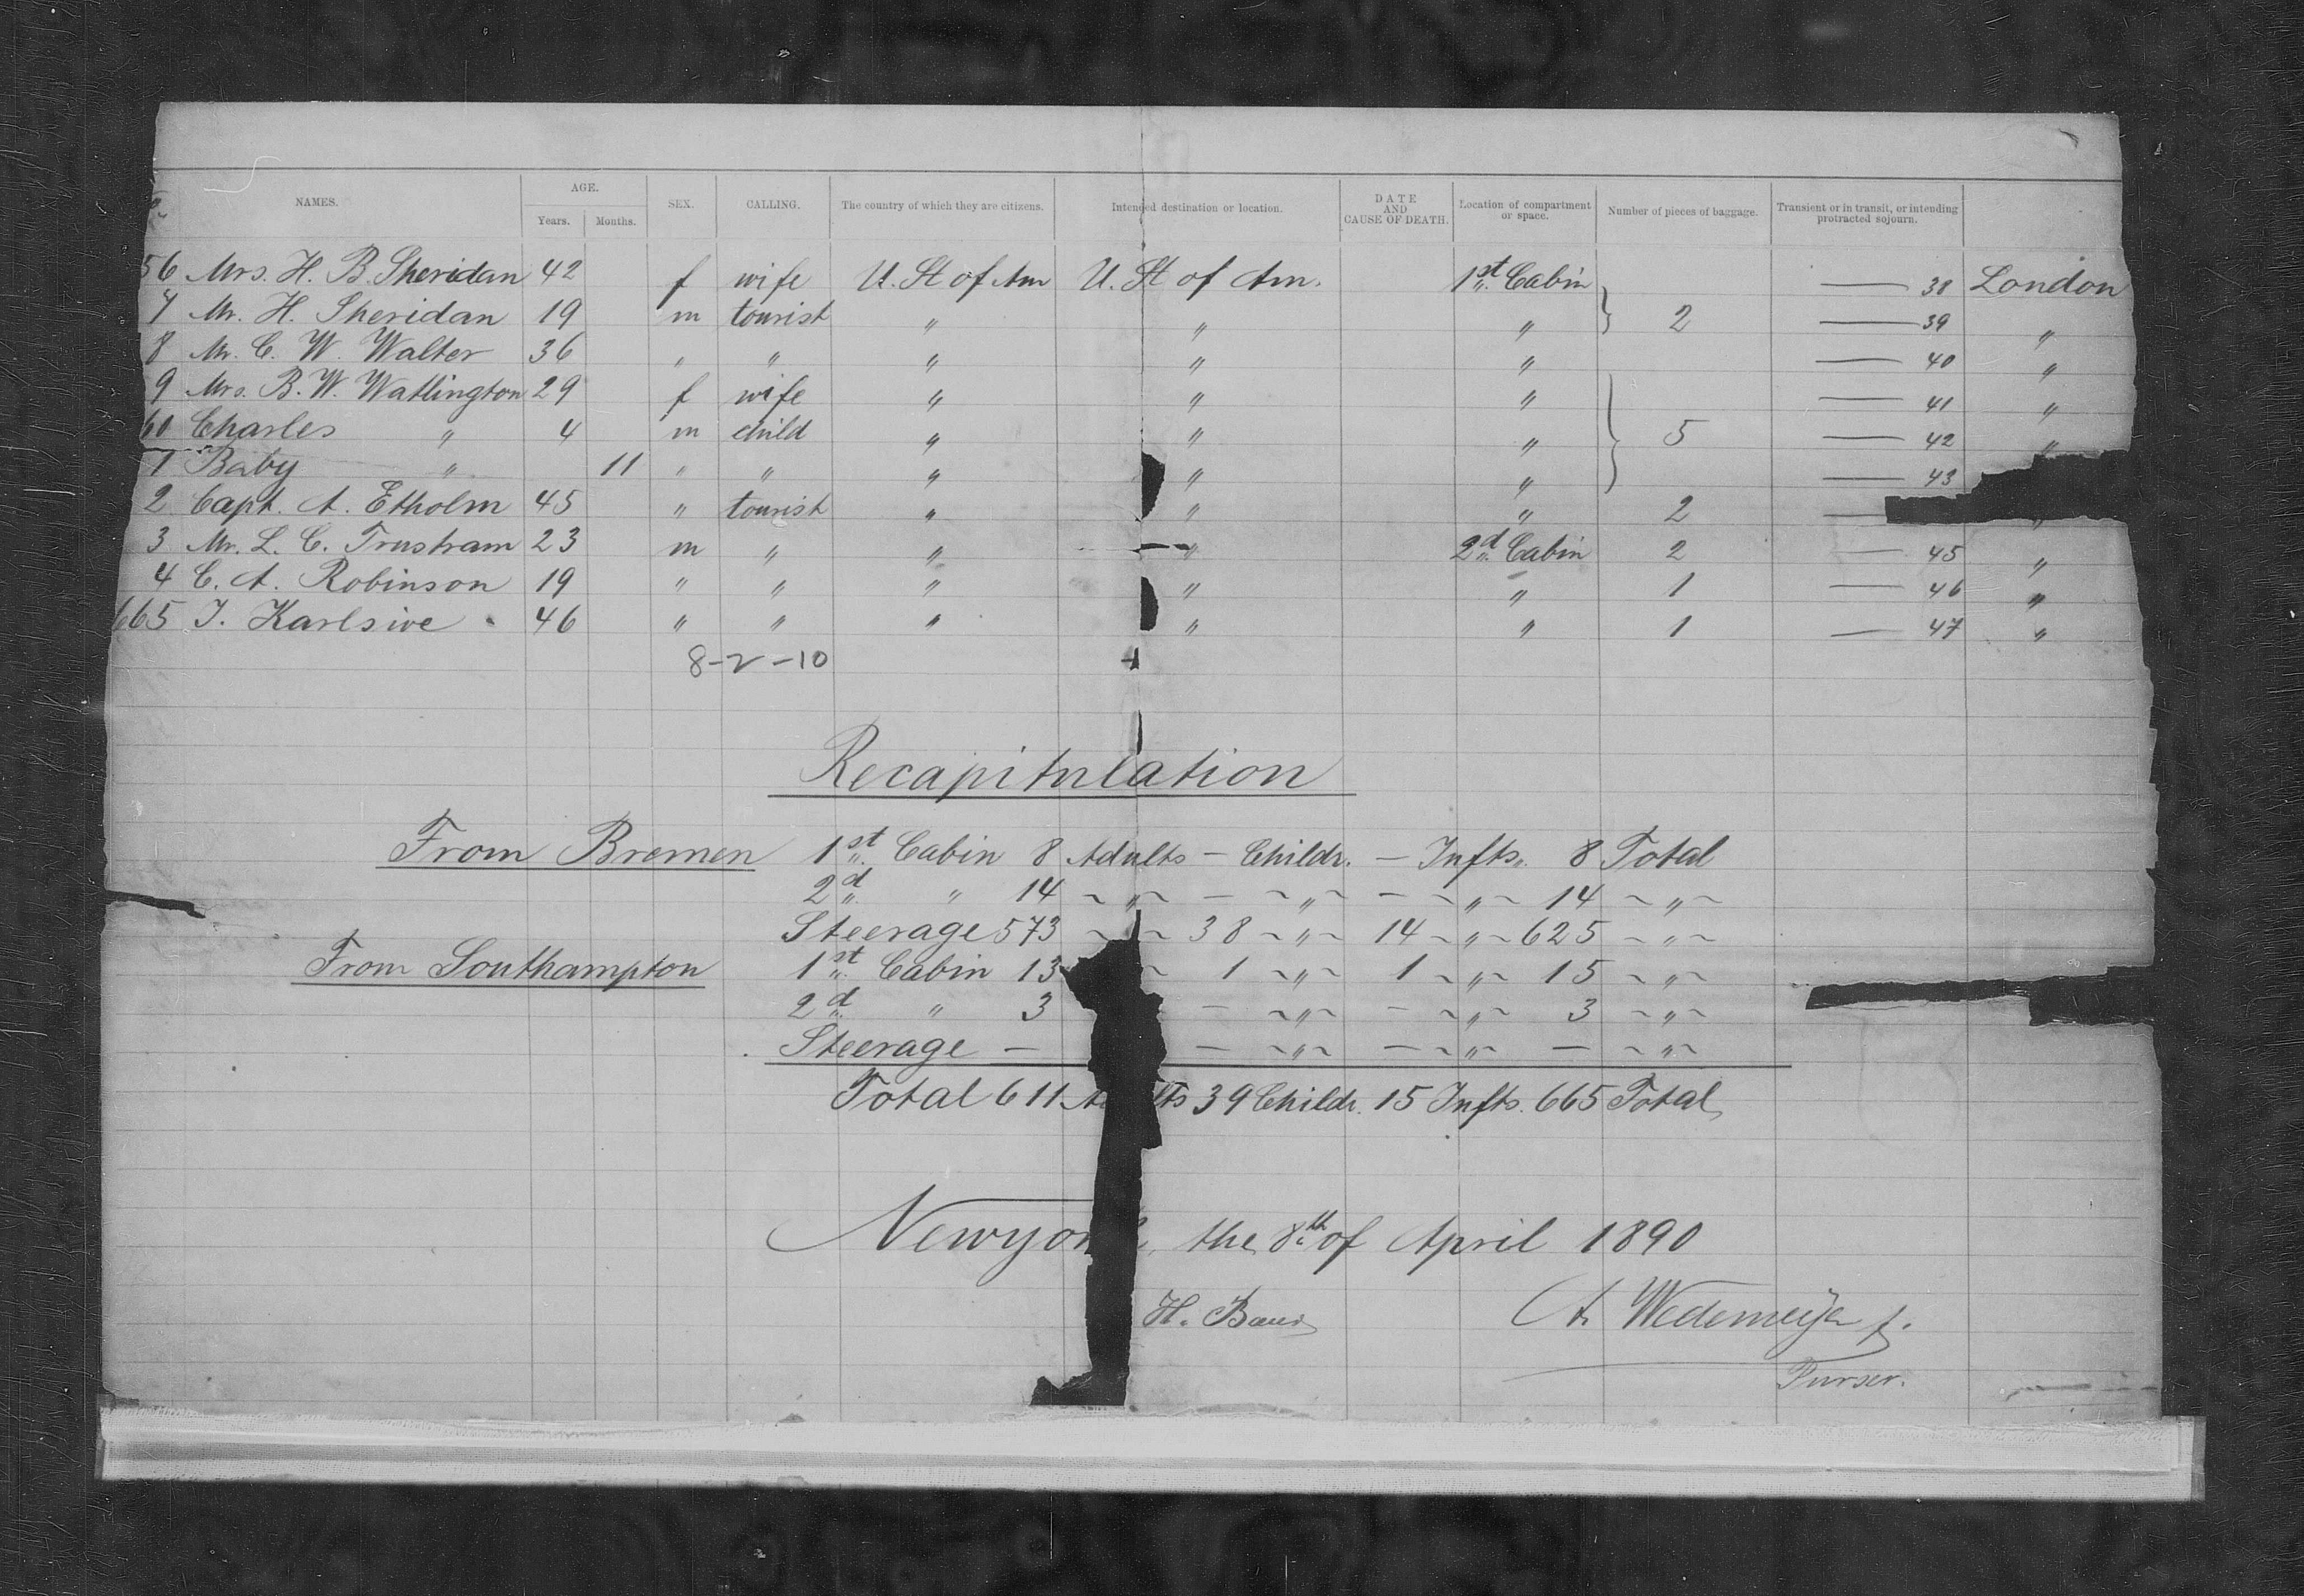 NAMES. AGE. SEX. CALLING. The country of which they are citizens. Intended destination or location. DATE AND CAUSE OF DEATH. Location of compartment or space. Number of pieces of baggage. Transient or in transit, or intending protracted sojourn.
Years. Months.
56 Mrs. H. B. Sheridan 42 f wife U. St of Am U. St of Am. 1st Cabin — 38 London
7 Mr. H. Sheridan 19 m tourist " " " } 2 — 39 "
8 Mr. C. W. Walter 36 " " " " " — 40 "
9 Mrs. B. W. Watlington 29 f wife " " " — 41 "
60 Charles " 4 m child " " " } 5 — 42 "
1 Baby " 11 " " " " " — 43
2 Capt. A. Etholm 45 " tourist " " " 2 — "
3 Mr. L. C. Trustram 23 m " " " 2d Cabin 2 — 45 "
4 C. A. Robinson 19 " " " " " 1 — 46 "
665 J. Karlsive 46 " " " " " 1 — 47 "
8-2-10
Recapitulation
From Bremen 1st Cabin 8 Adults — Childr. — Infts. 8 Total
2d " 14 ~ " ~ — ~ " ~ — ~ " ~ 14 ~ " ~
Steerage 573 ~ ~ 38 ~ " ~ 14 ~ " ~ 625 ~ " ~
From Southampton 1st Cabin 13 ~ 1 ~ " ~ 1 ~ " ~ 15 ~ " ~
2d " 3 — ~ " ~ — ~ " ~ 3 ~ " ~
Steerage — — ~ " ~ — ~ " ~ — ~ " ~
Total 611 A lts 39 Childr. 15 Infts. 665 Total
Newyork, the 8th of April 1890
H. Baur A. Wedemeyer
Purser.